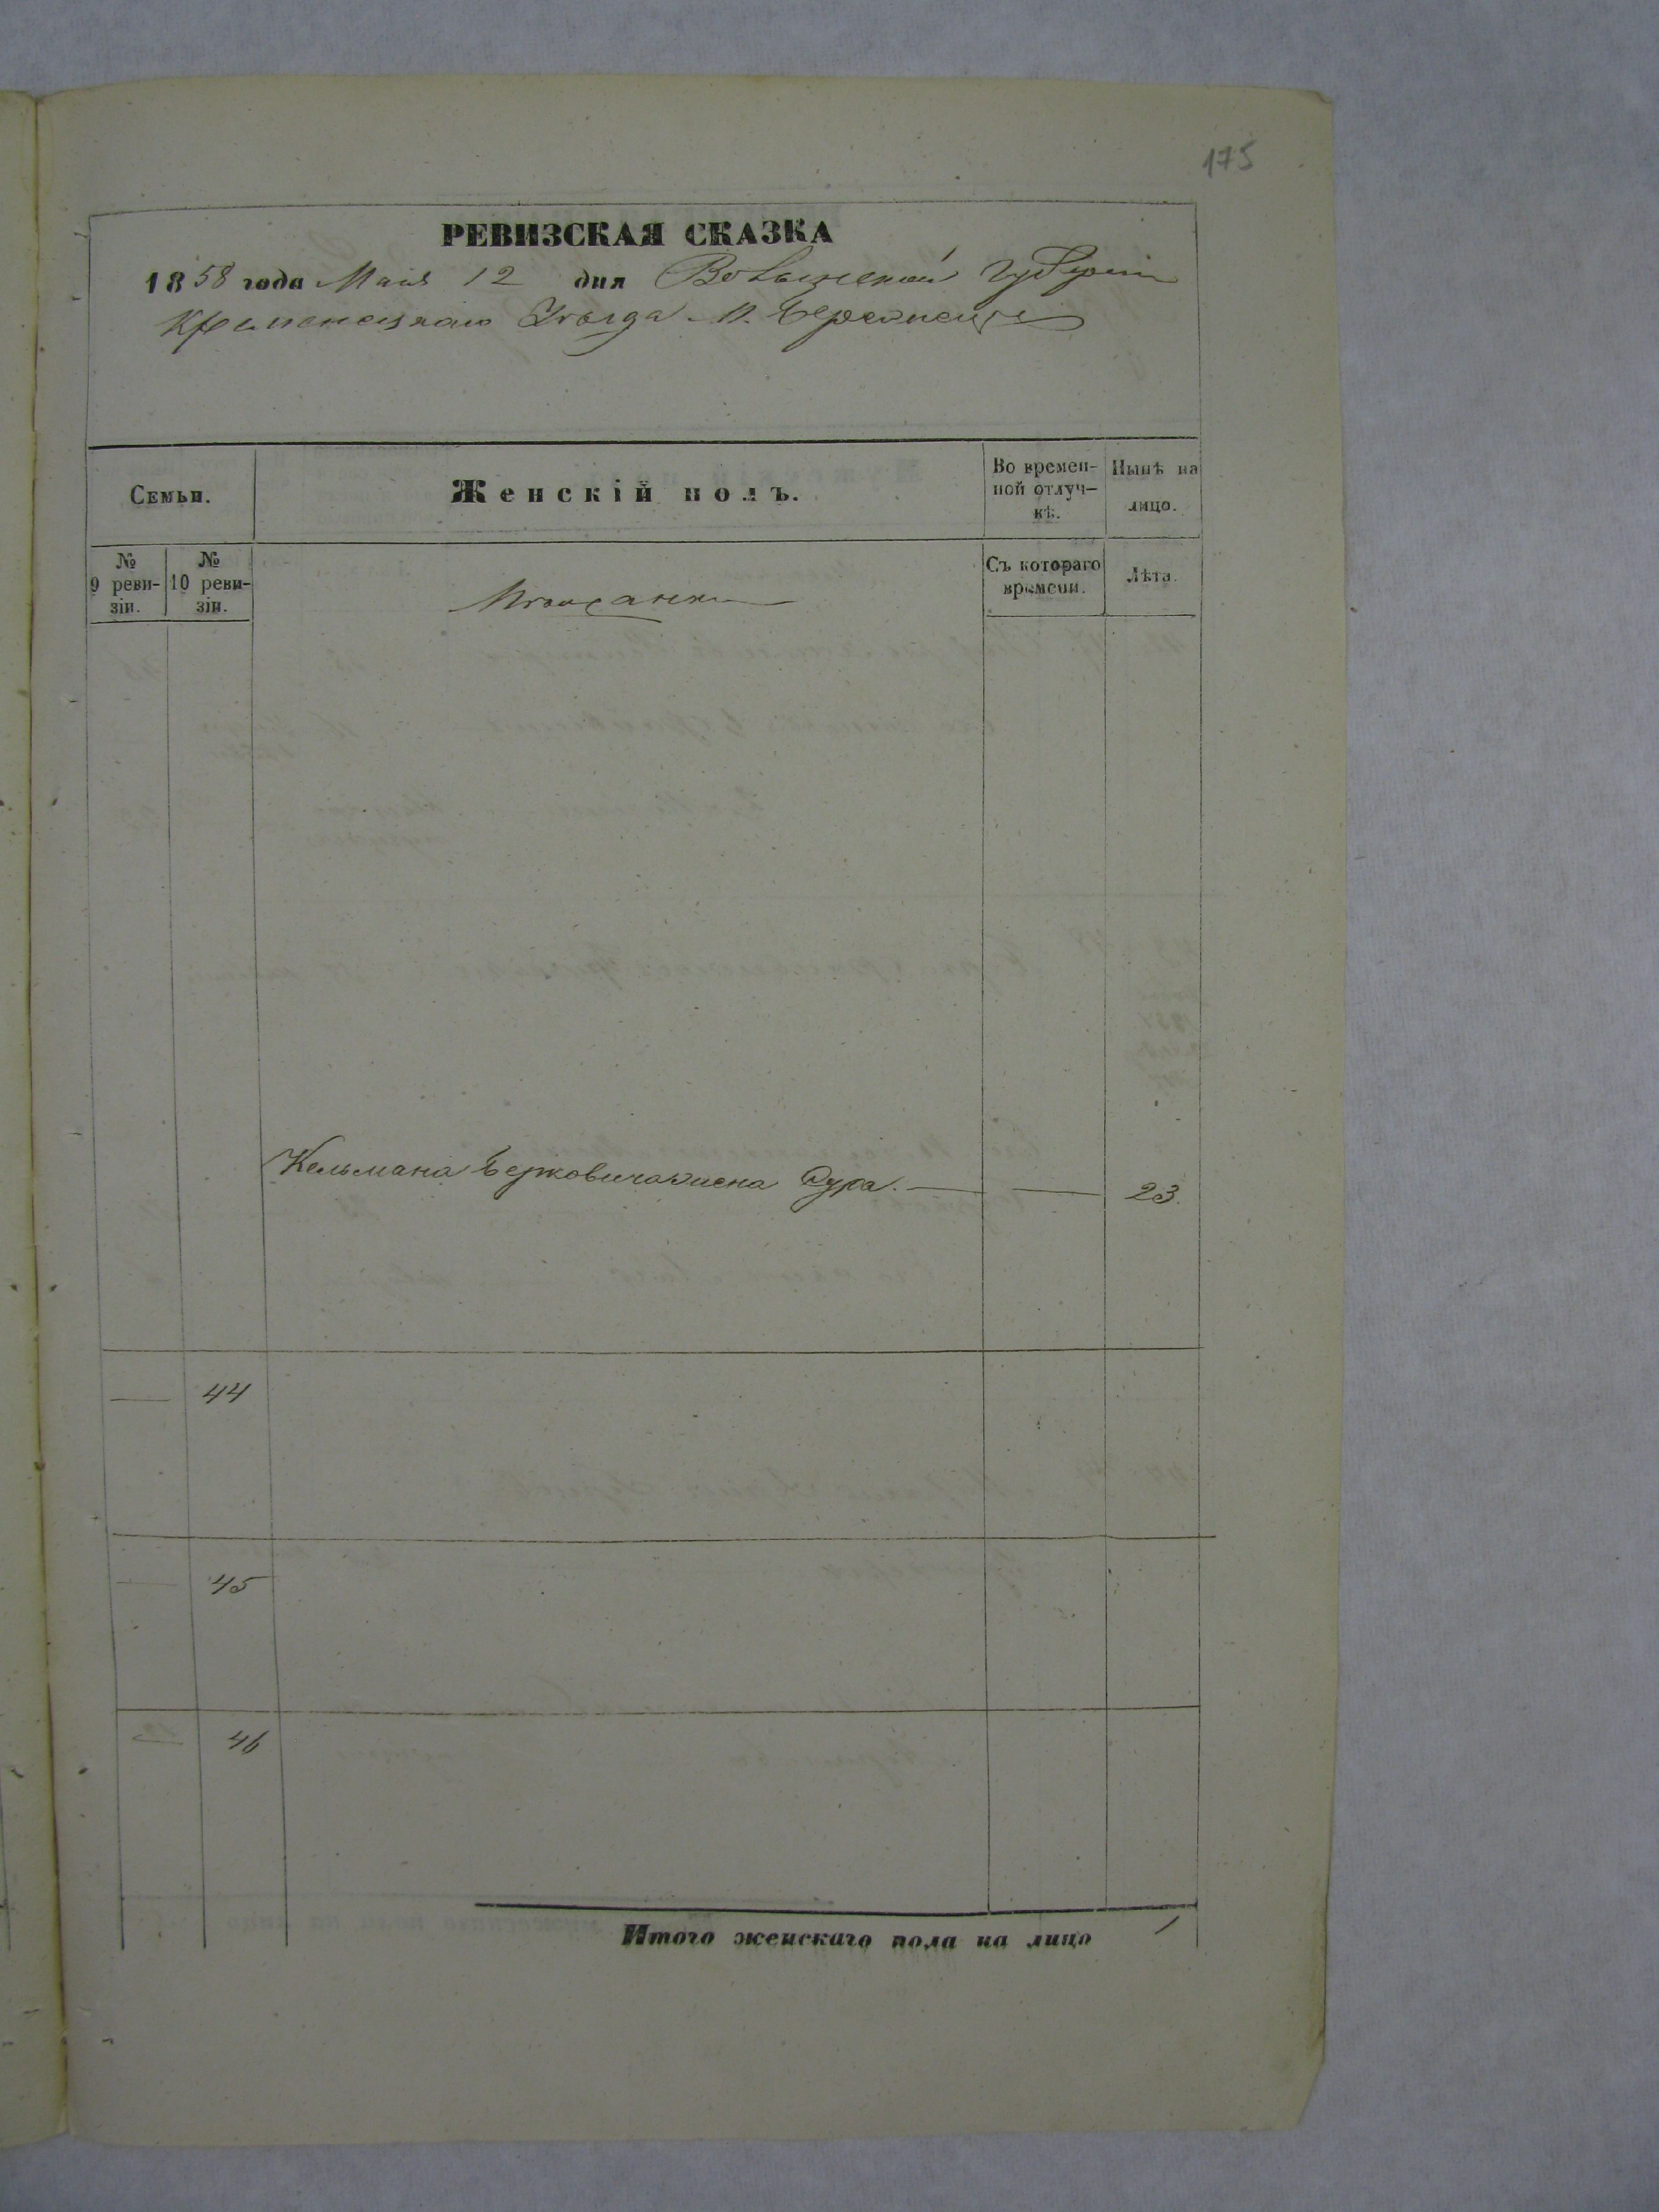 175
РЕВИЗСКАЯ СКАЗКА
1858 года Мая 12 дня Волынской Губерніи
Кременецкаго Уѣзда М. Бережецъ
Семьи.
Женскій полъ.
Во времен-
ной отлуч-
кѣ.
Нынѣ на
лицо.
№
9 реви-
зіи.
№
10 реви-
зіи.
Мѣщанки
Съ котораго
времени.
Лѣта.
Кельмана Берковича жена Сура. 23.
44
45
46
Итого женскаго пола на лицо 1